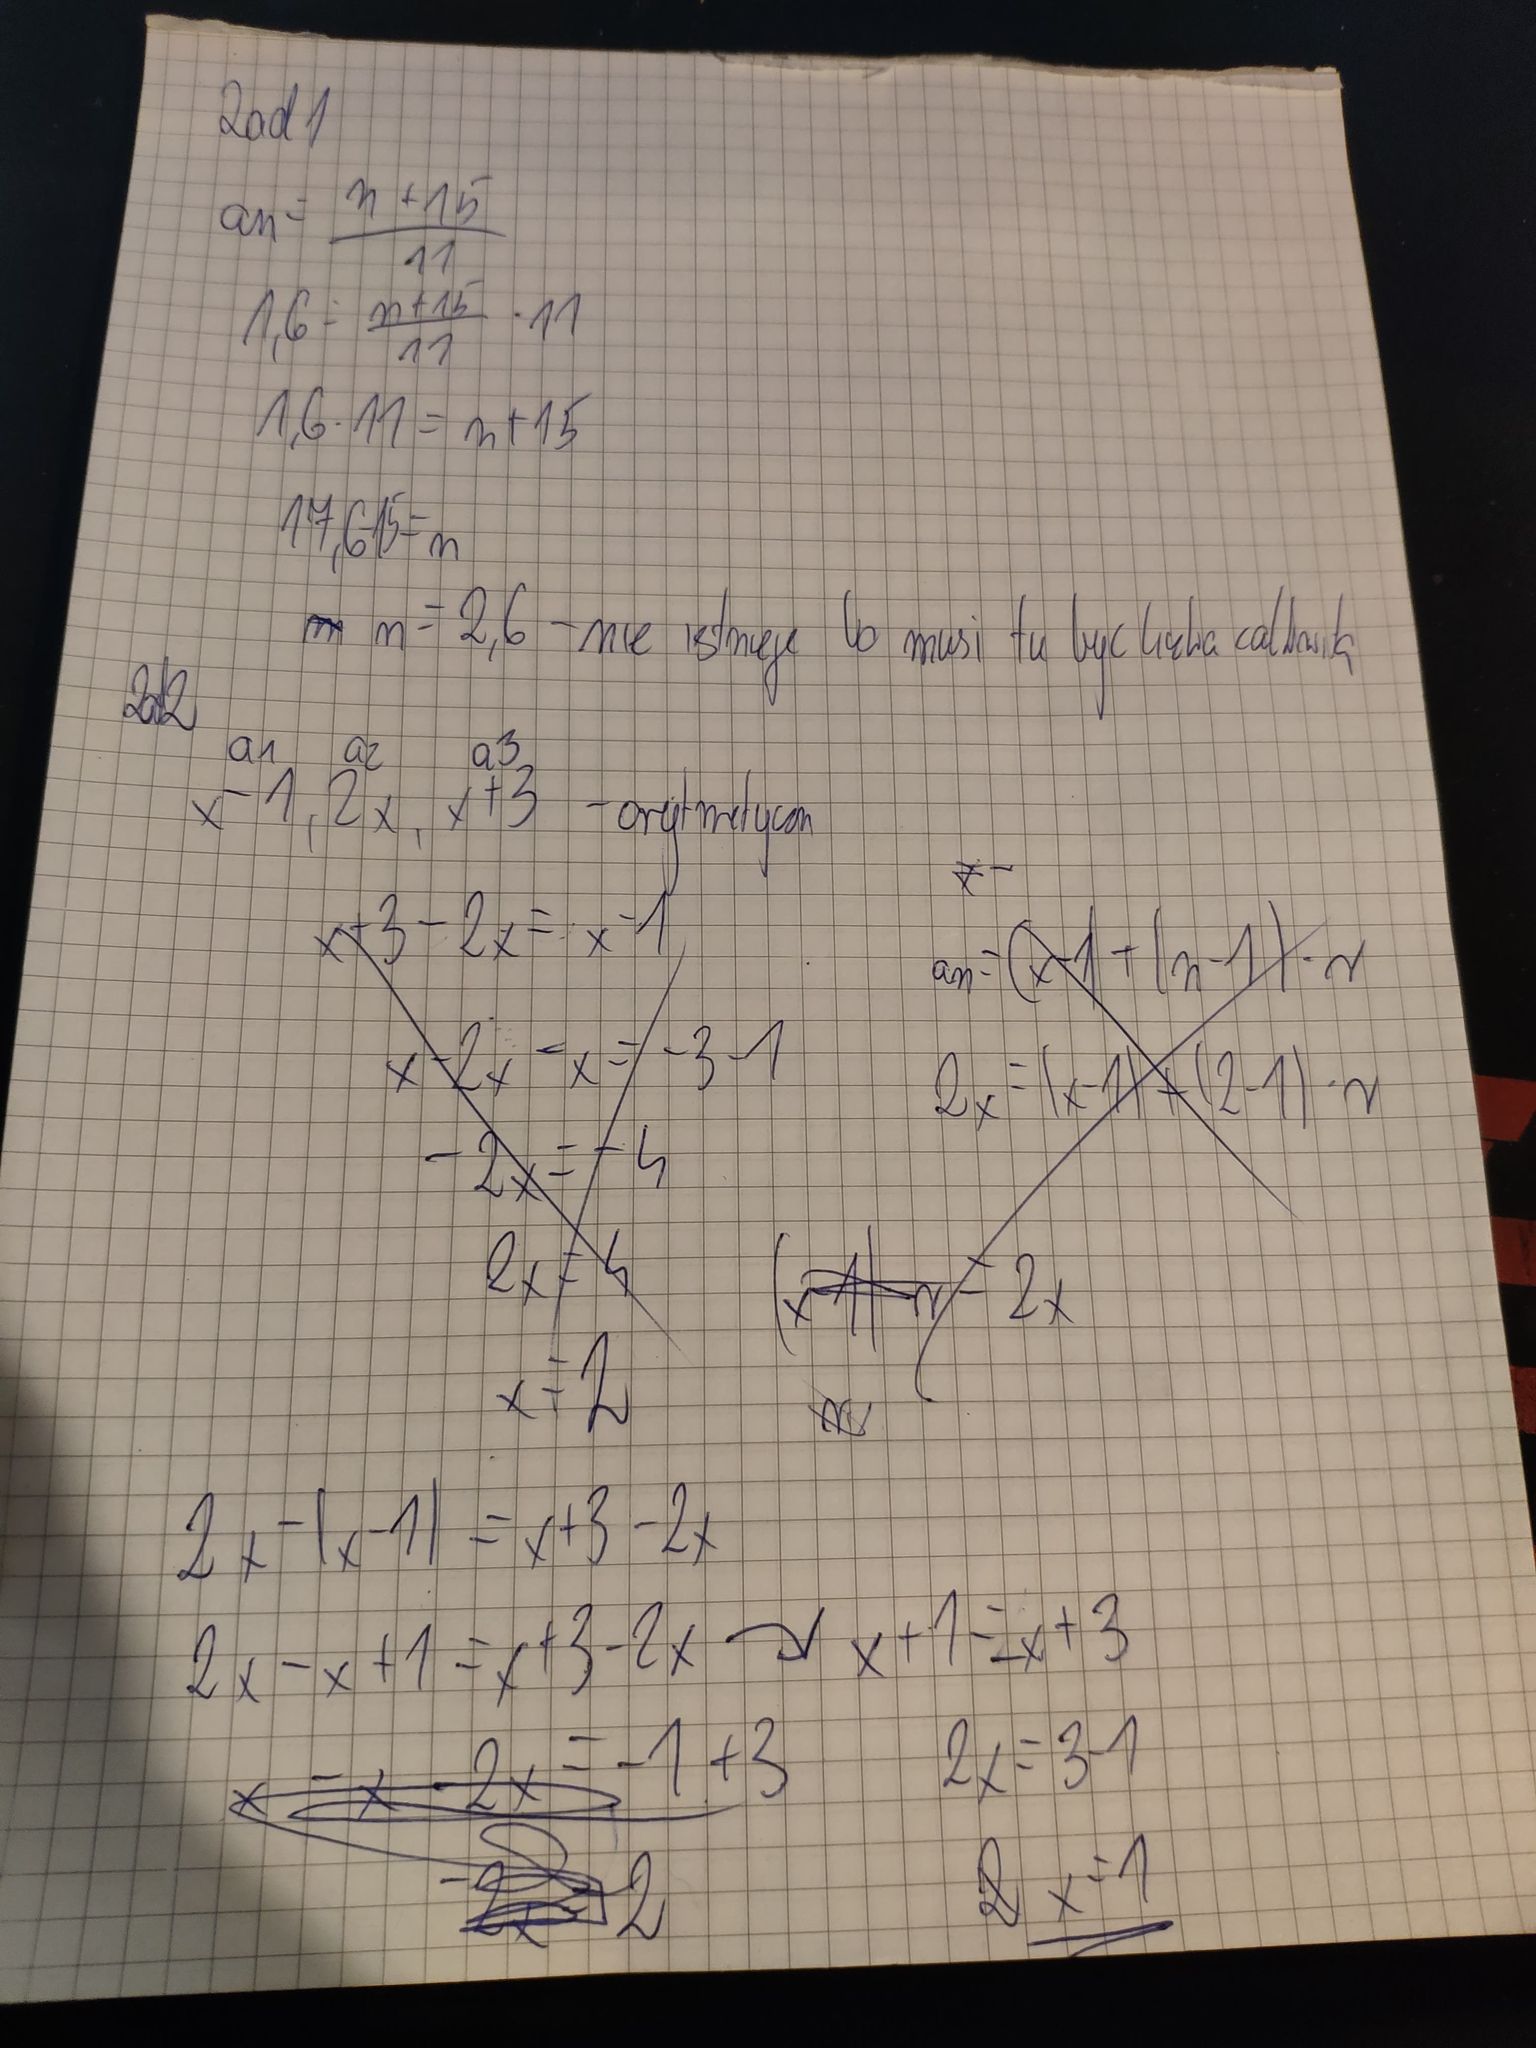 Zad 1
an = n+15
11
1,6 = n+15 · 11
11
1,6 · 11 = n+15
17,6-15 = n
n = 2,6 - nie istnieje bo musi tu być liczba całkowita
Zad2
a1 a2 a3
x-1, 2x, x+3 - arytmetyczn
x+3-2x = x-1
x-2x-x = -3-1
-2x = -4
2x = 4
x = 2
an = (x-1) + (n-1) · r
2x = (x-1) + (2-1) · r
(x-1) r = 2x
2x-(x-1) = x+3-2x
2x-x+1 = x+3-2x → x+1 = -x+3
x -x -2x = -1+3
2x = 3-1
-2x 2
x = 1